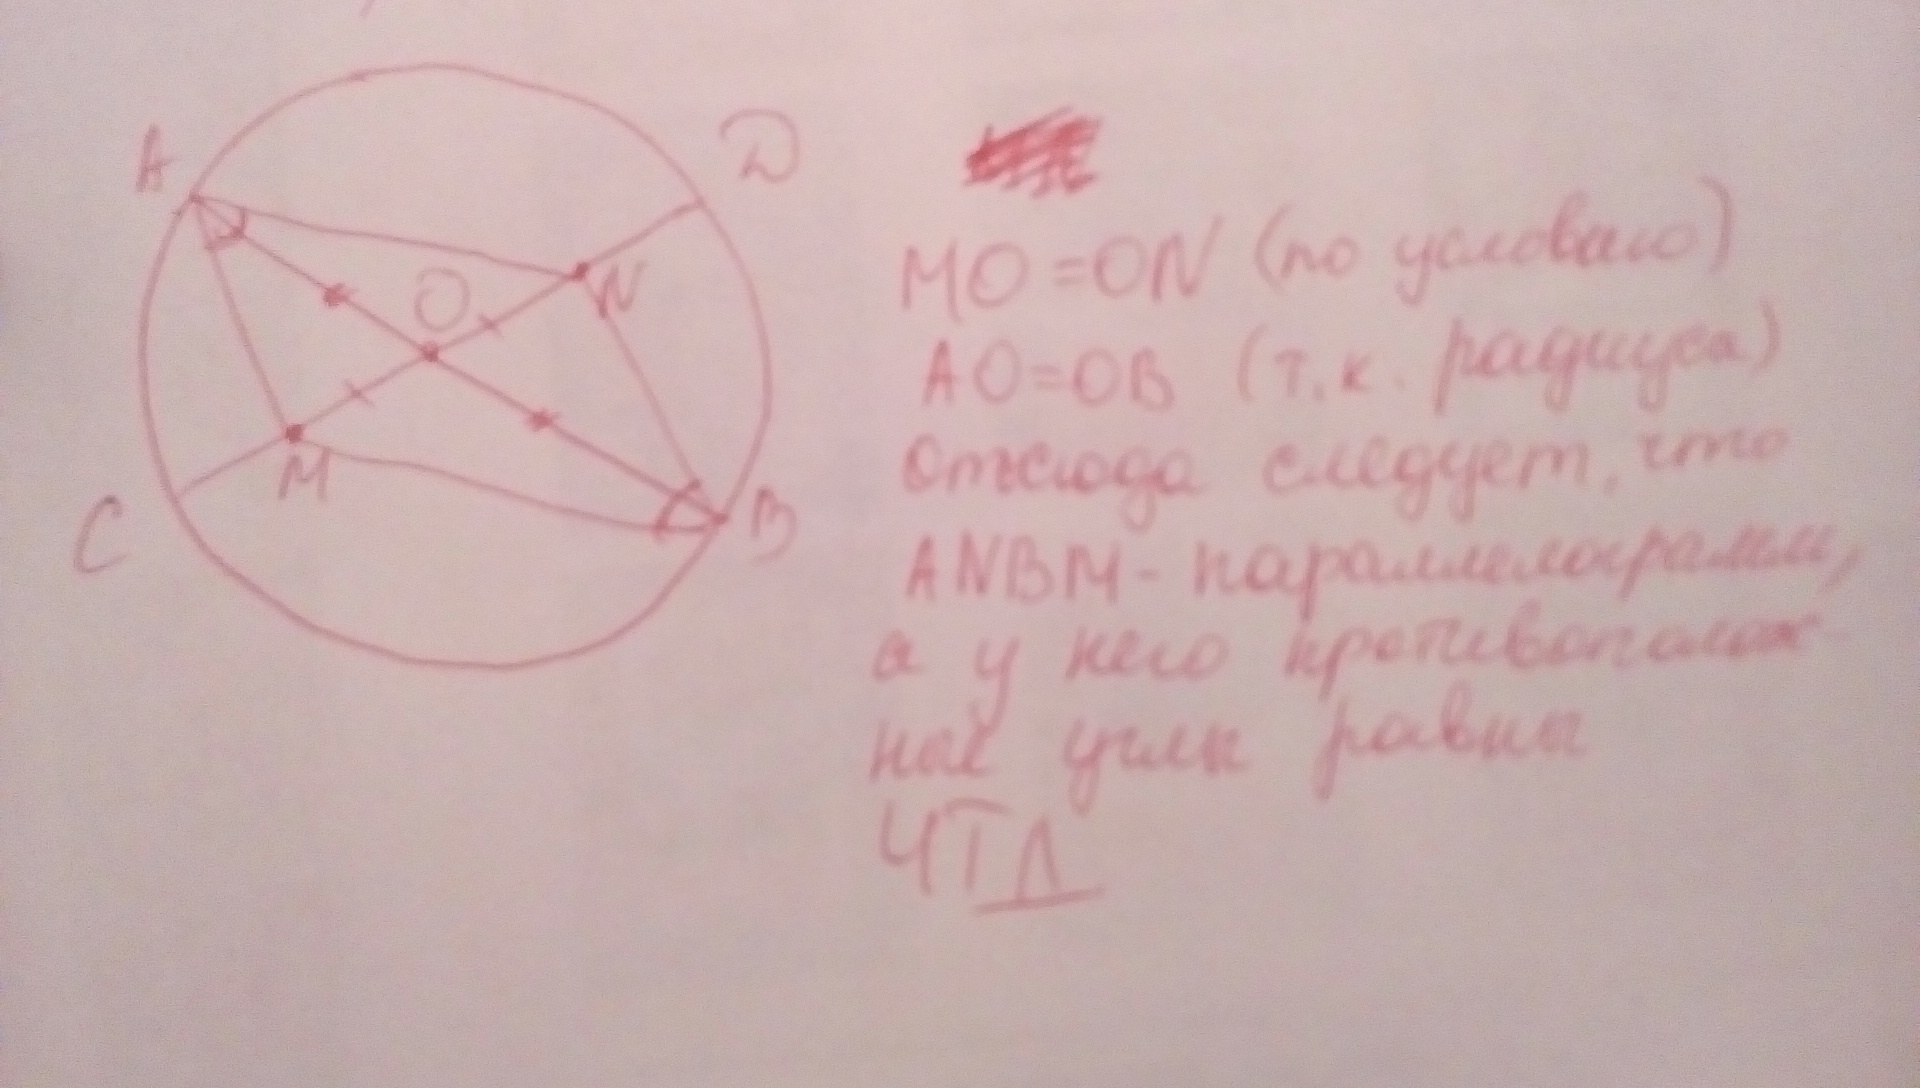 A
D
O
N
M
C
B
MO=ON (по условию)
AO=OB (т.к. радиуса)
Отсюда следует, что
ANBM- параллелограмм,
а у него противополож-
ные углы равны
ЧТД